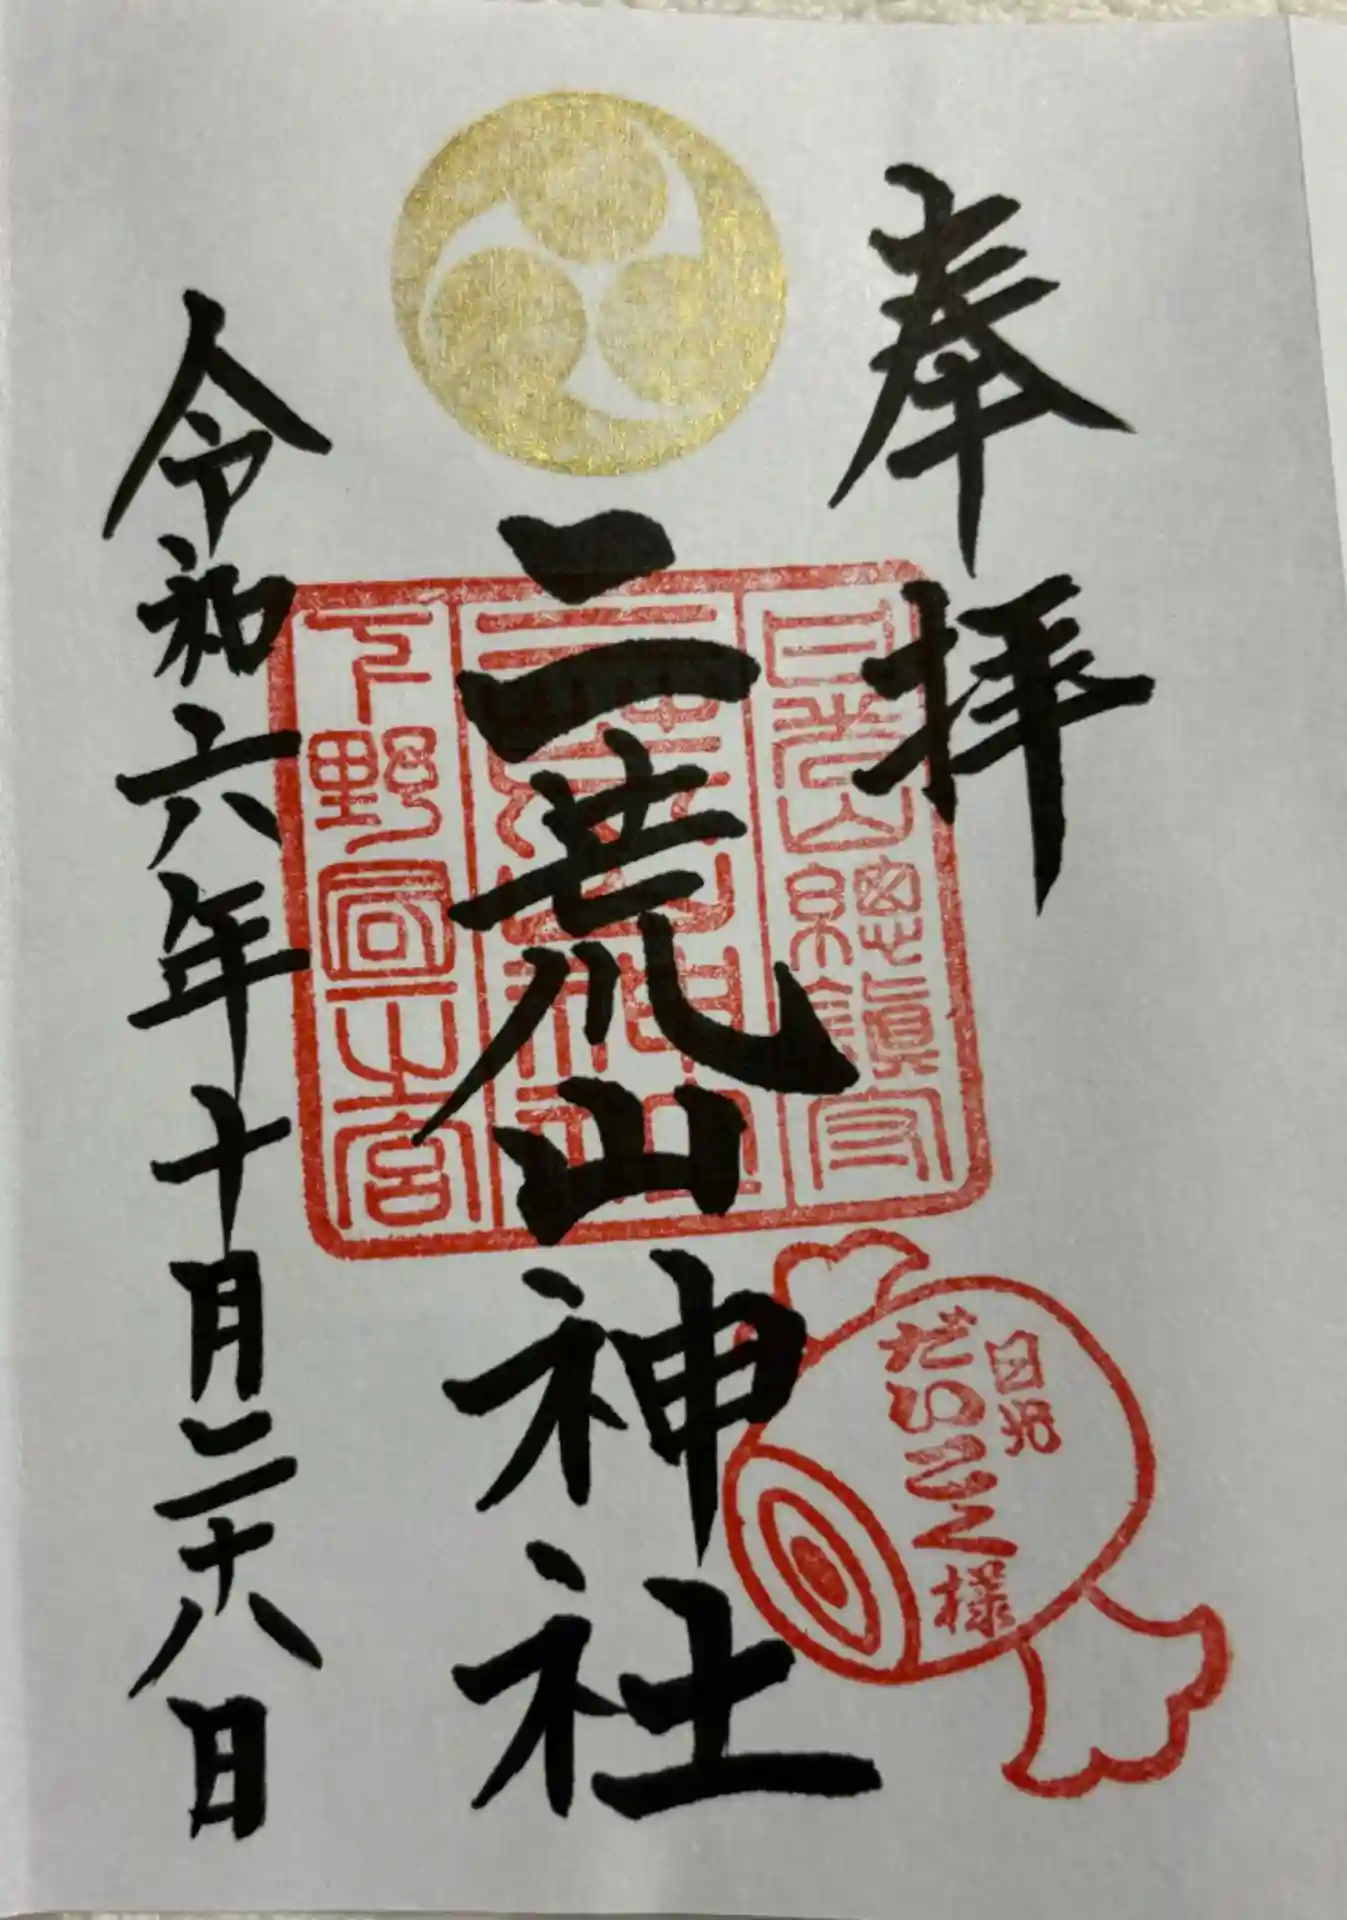 奉拝
日光山總鎮守
二荒山神社
二荒山神社
下野國一之宮
令和六年十月二十八日
日光
だいこく様